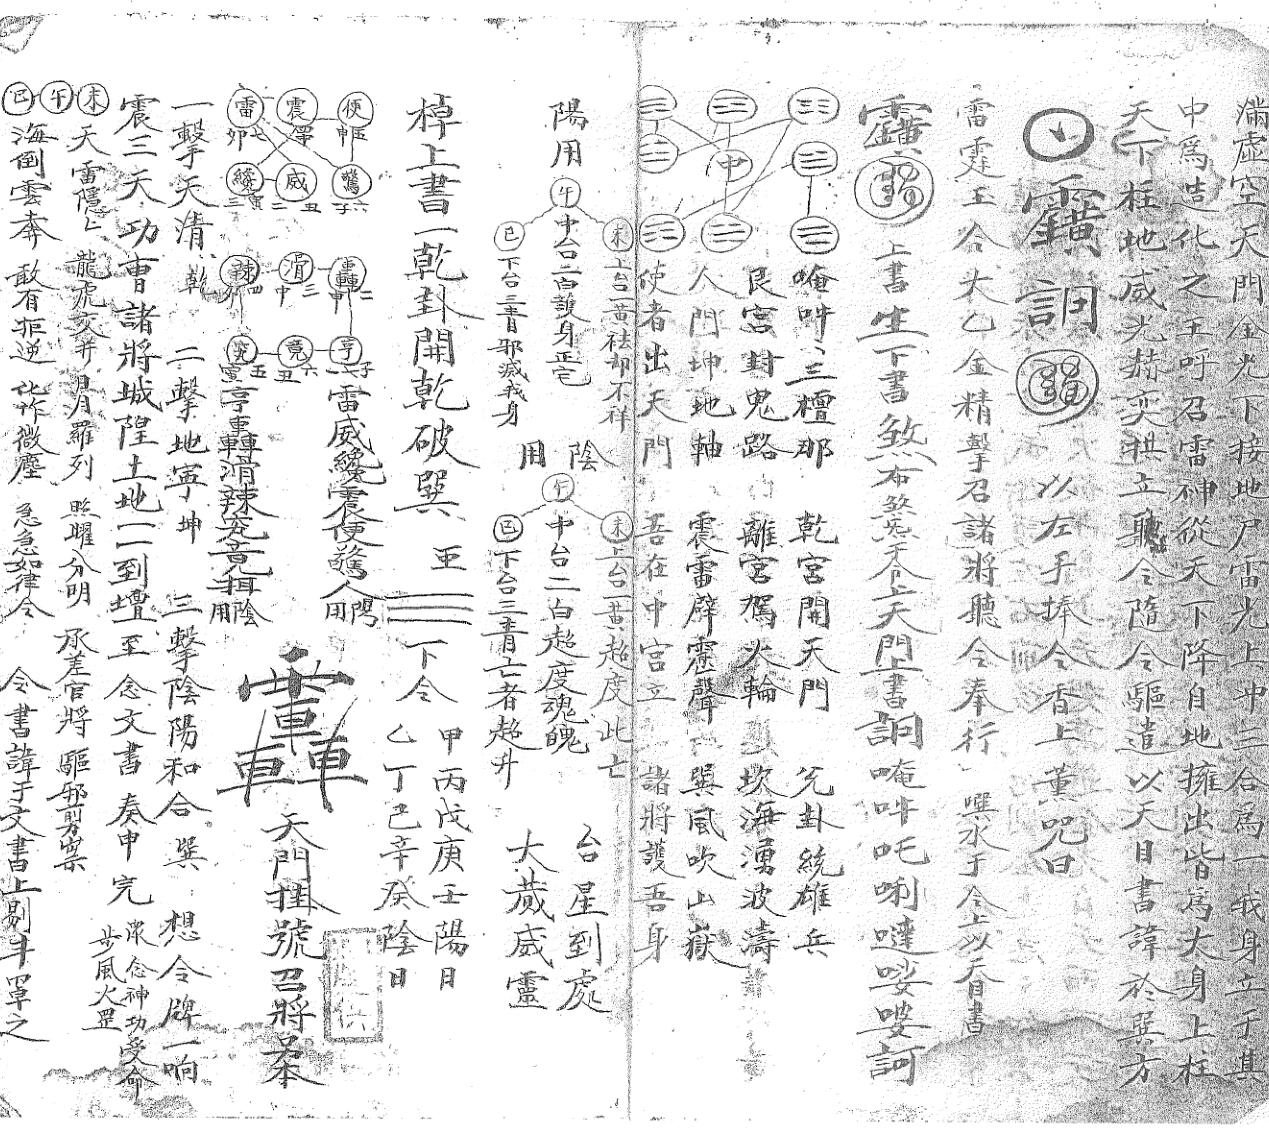 滿虛空天門金光下接地戶雷光上冲三合為一我身立于其
中為造化之主呼召雷神從天下降自地擁出皆為大身上柱
天下柱地威光赫奕拱立聽令隨令驅遣以天目書諱於巽方
詷
以左手捧令香上薰咒曰
雷霆玉令太乙金精擊召諸將聽令奉行 噀水于令上以天目書
上書生下書煞布煞炁于令上天門上書詷唵吽吒唎噠娑婆訶
唵吽〻三檀那 乾宮開天門 兌卦統雄兵
中
艮宮封鬼路 離宮駕火輪 坎海湧波濤
人門坤地軸 震雷霹靂聲 巽風吹山嶽
使者出天門 吾在中宮立 諸將護吾身
陽用
午 中台二白護身正宅
未 上台一黃祛却不祥
巳 下台三青邪滅我身
陰用
午 中台二白超度魂魄
未 上台一黃超度此亡
巳 下台三青亡者超升
台星到處
大藏威靈
棹上書一乾卦開乾破巽 亜 下令
甲丙戊庚壬陽日
乙丁己辛癸陰日
便 震 雷
驚 威 纔
轟 滑 辣
亨 竟 究
雷威纔震便驚人 陽用
亨轟滑辣究竟 陰用
天門掛號召將
一擊天清 乾 二擊地寧 坤 三擊陰陽和合 巽 想令牌一响
震三天功曹諸將城隍土地一一到壇至念文書奏申完
眾念神功受命
步風火罡
未 午 巳
天雷隱〻 龍虎交并 日月羅列 照曜分明 承差官將 驅邪剪祟
海倒雲奔 敢有拒逆 化作微塵 急急如律令 令書諱于文書上剔斗罩之